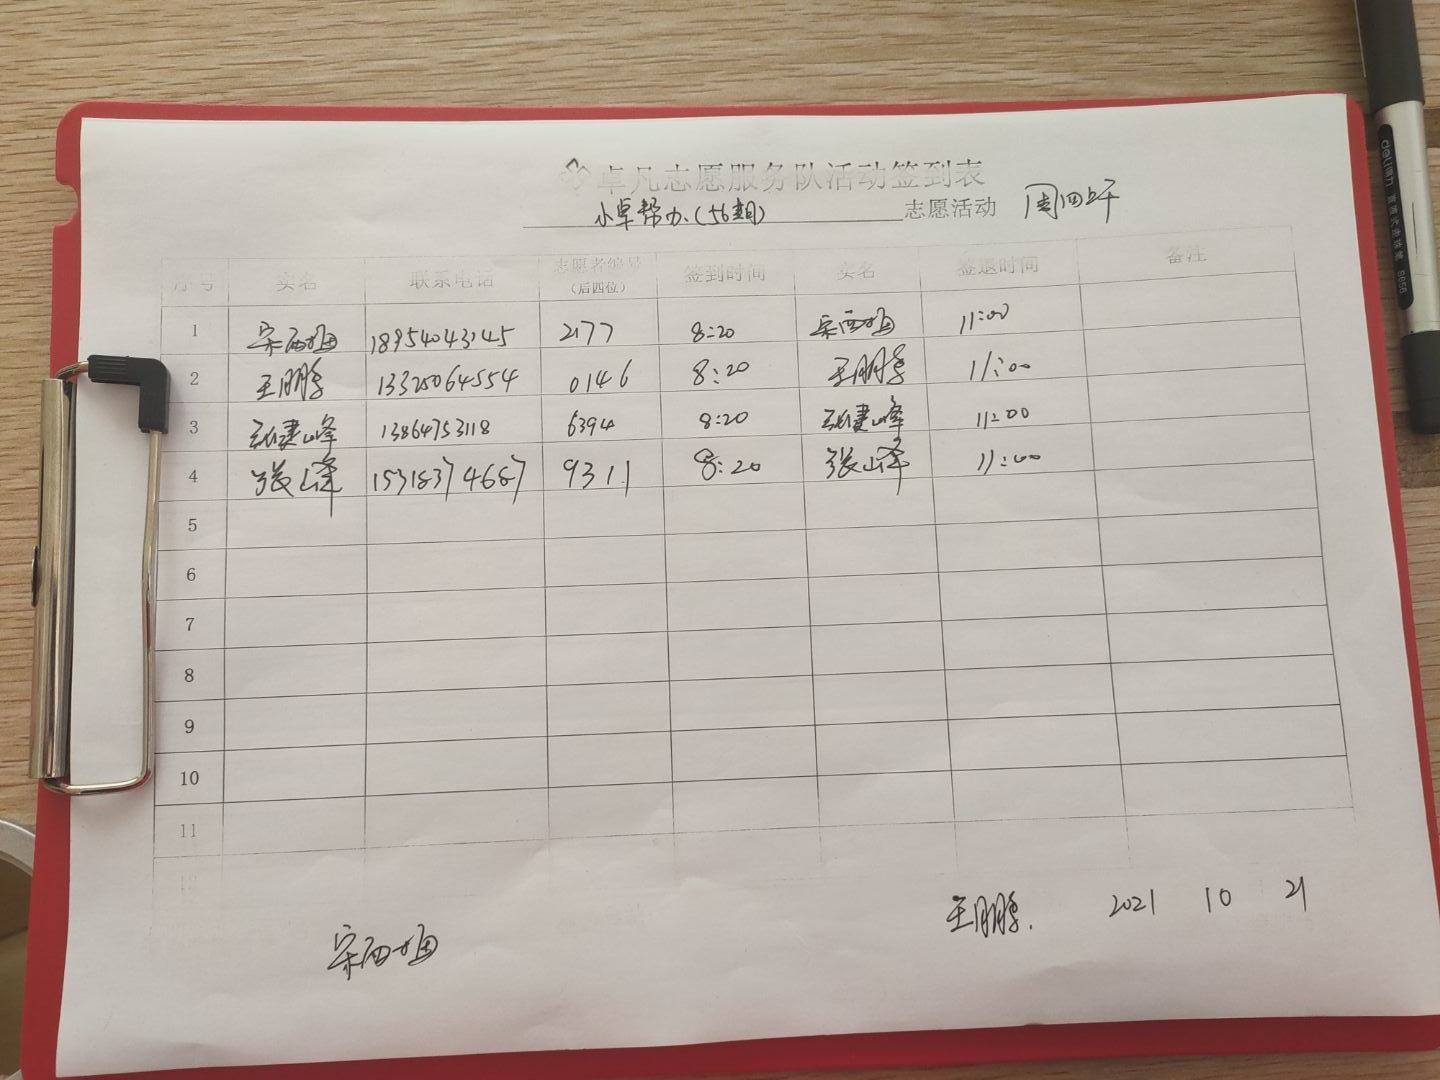 卓凡志愿服务队活动签到表
小卓帮办(56期) 志愿活动 周四上午
序号 实名 联系电话 志愿者编号（后四位） 签到时间 实名 签退时间 备注
1 宋西梅 18954043145 2177 8:20 宋西梅 11:00
2 王鹏 0146 8:20 王鹏 11:00
3 张建峰 13864753118 6394 8:20 张建峰 11:00
4 张峰 15318374687 9311 8:20 张峰 11:00
5
6
7
8
9
10
11
12
宋西梅 王鹏 2021 10 21
deli得力
S656